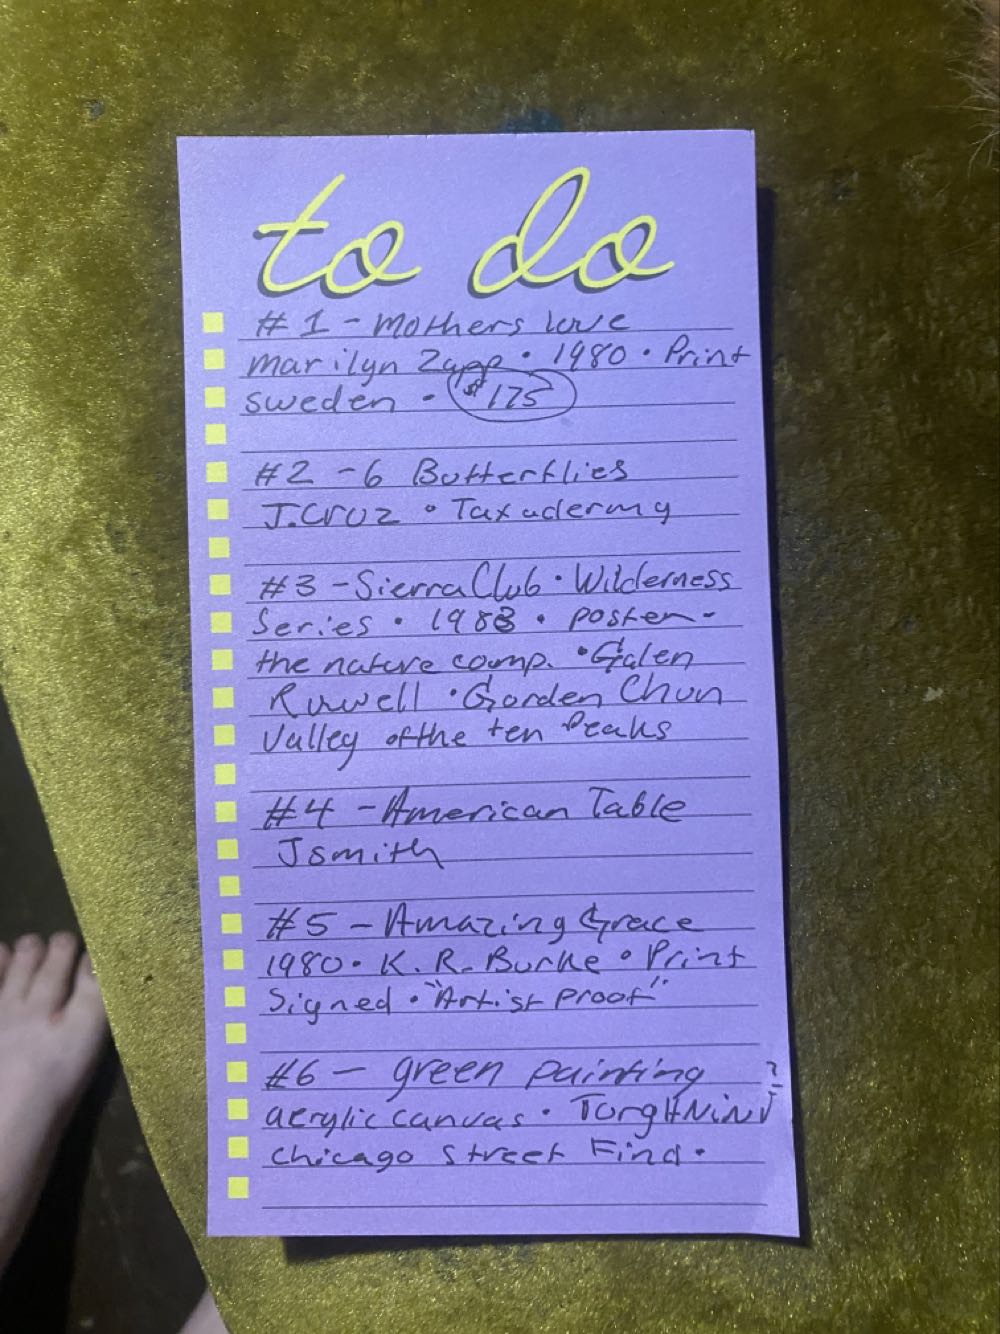 to do
#1 - Mothers love
Marilyn Zapp • 1980 • Print
Sweden • $175
#2 - 6 Butterflies
J.Cruz • Taxadermy
#3 - Sierra Club • Wilderness
Series • 1988 • poster -
the nature comp. • Galen
Rowell • Gorden Chun
Valley of the ten Peaks
#4 - American Table
Jsmith
#5 - Amazing Grace
1980 • K.R. Burke • Print
Signed • "Artist proof"
#6 - green painting
acrylic canvas •
chicago street Find •